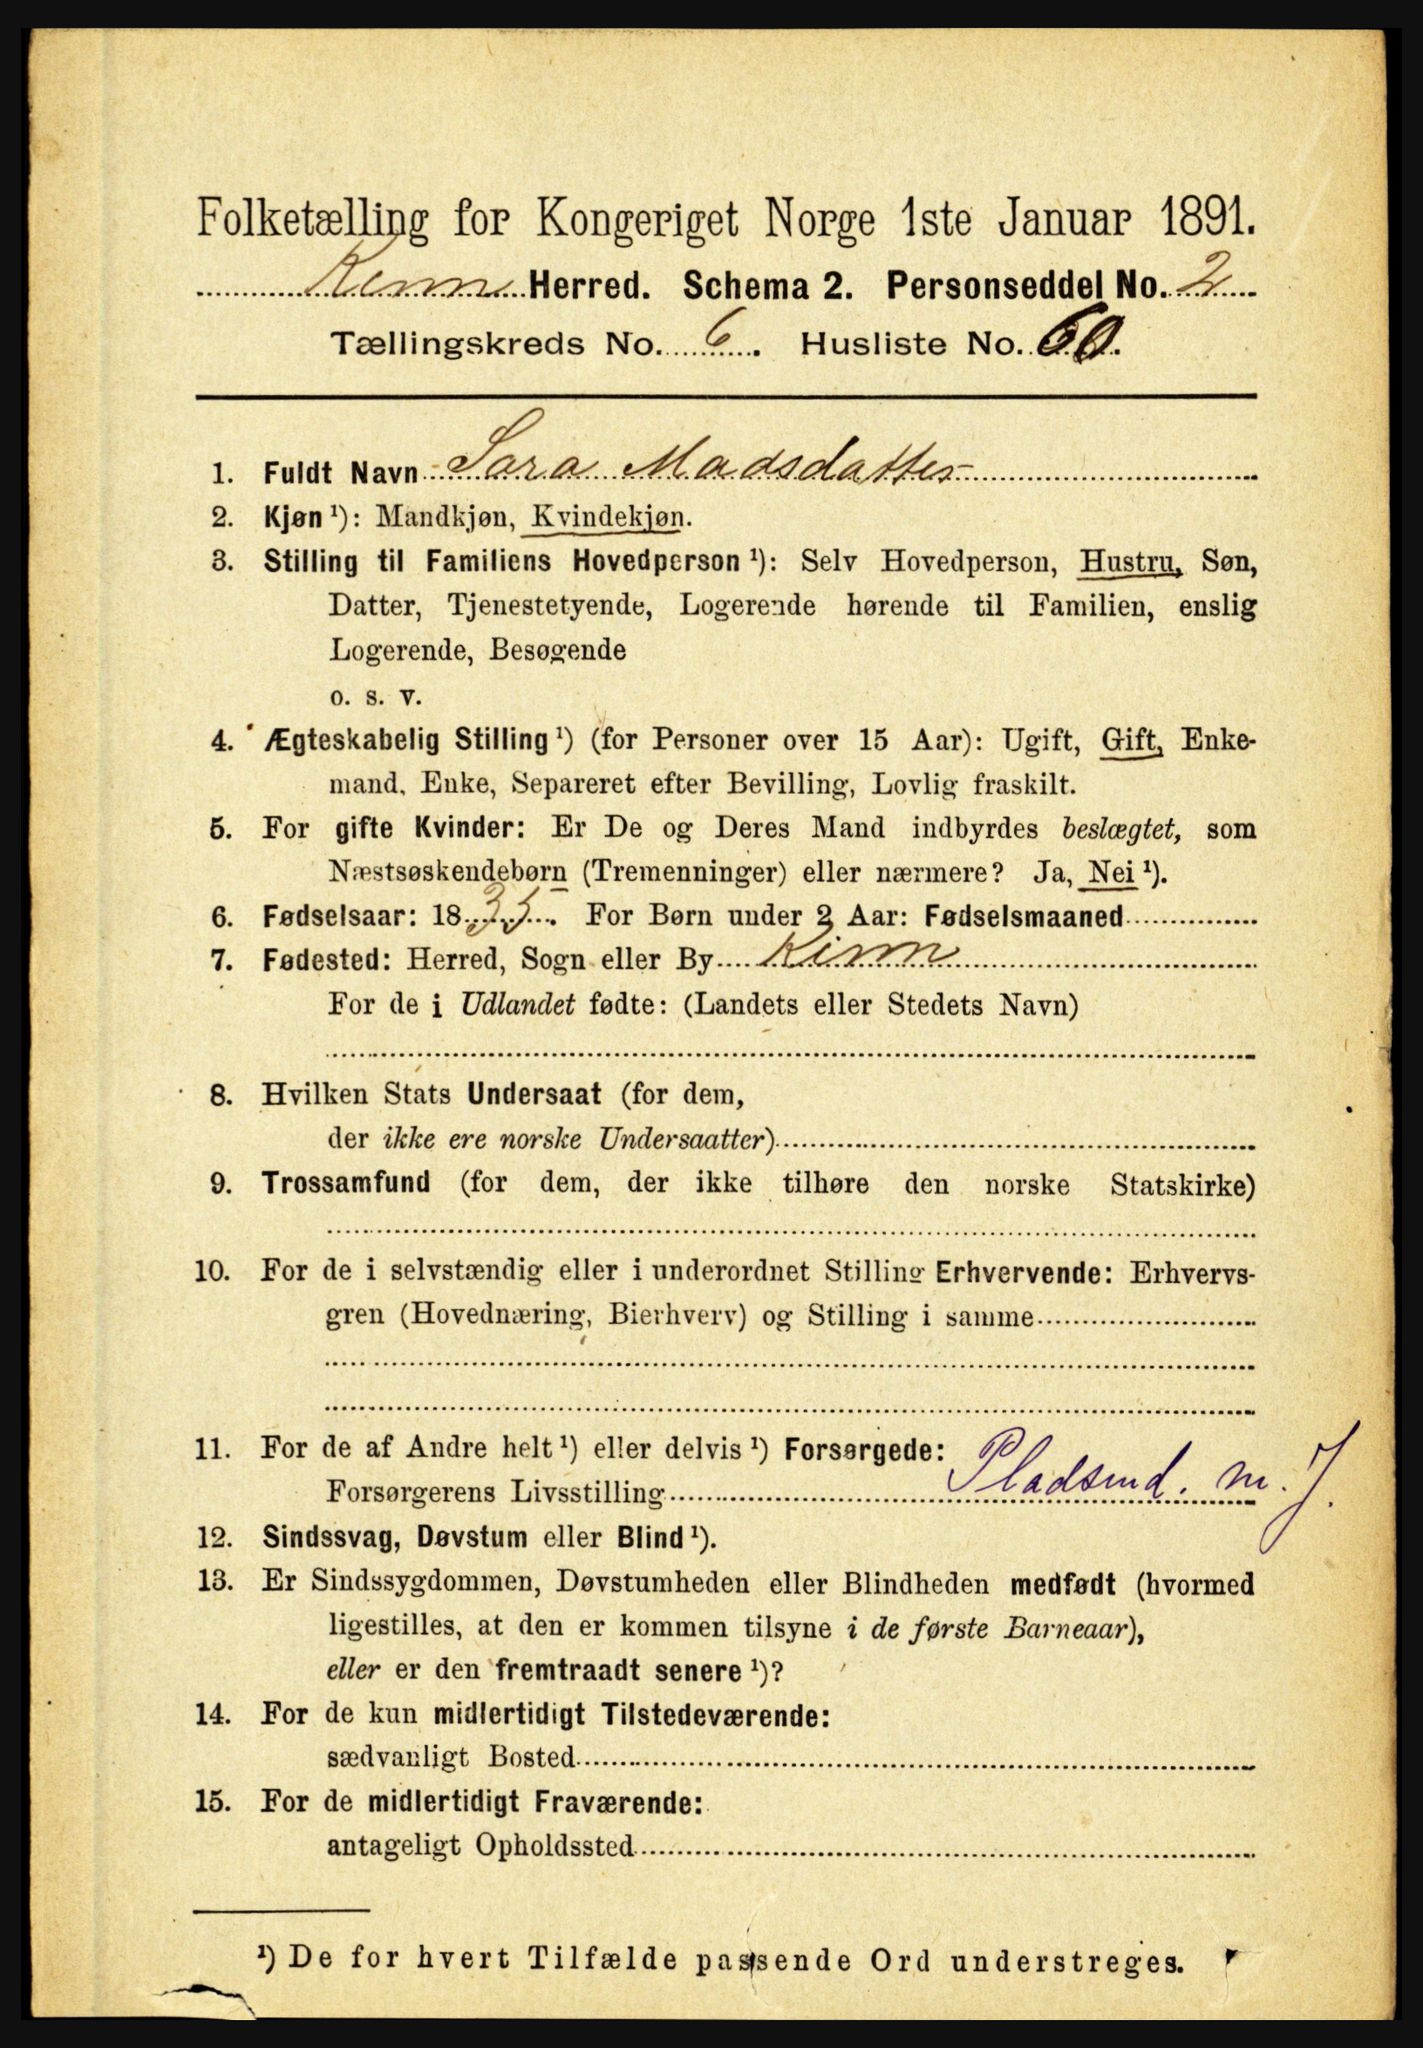 Folketælling for Kongeriget Norge 1ste Januar 1891.
Kinn Herred. Schema 2. Personseddel No. 2
Tællingskreds No. 6. Husliste No. 60.
1. Fuldt Navn Sara Madsdatter
2. Kjøn ¹): Mandkjøn, Kvindekjøn.
3. Stilling til Familiens Hovedperson ¹): Selv Hovedperson, Hustru, Søn,
Datter, Tjenestetyende, Logerende hørende til Familien, enslig
Logerende, Besøgende
o. s. v.
4. Ægteskabelig Stilling ¹) (for Personer over 15 Aar): Ugift, Gift, Enke-
mand, Enke, Separeret efter Bevilling, Lovlig fraskilt.
5. For gifte Kvinder: Er De og Deres Mand indbyrdes beslægtet, som
Næstsøskendebørn (Tremenninger) eller nærmere? Ja, Nei ¹).
6. Fødselsaar: 1835. For Børn under 2 Aar: Fødselsmaaned
7. Fødested: Herred, Sogn eller By Kinn
For de i Udlandet fødte: (Landets eller Stedets Navn)
8. Hvilken Stats Undersaat (for dem,
der ikke ere norske Undersaatter)
9. Trossamfund (for dem, der ikke tilhøre den norske Statskirke)
10. For de i selvstændig eller i underordnet Stilling Erhvervende: Erhvervs-
gren (Hovednæring, Bierhverv) og Stilling i samme
11. For de af Andre helt ¹) eller delvis ¹) Forsørgede:
Forsørgerens Livsstilling Pladsmd. m. J.
12. Sindssvag, Døvstum eller Blind ¹).
13. Er Sindssygdommen, Døvstumheden eller Blindheden medfødt (hvormed
ligestilles, at den er kommen tilsyne i de første Barneaar),
eller er den fremtraadt senere ¹)?
14. For de kun midlertidigt Tilstedeværende:
sædvanligt Bosted
15. For de midlertidigt Fraværende:
antageligt Opholdssted
¹) De for hvert Tilfælde passende Ord understreges.